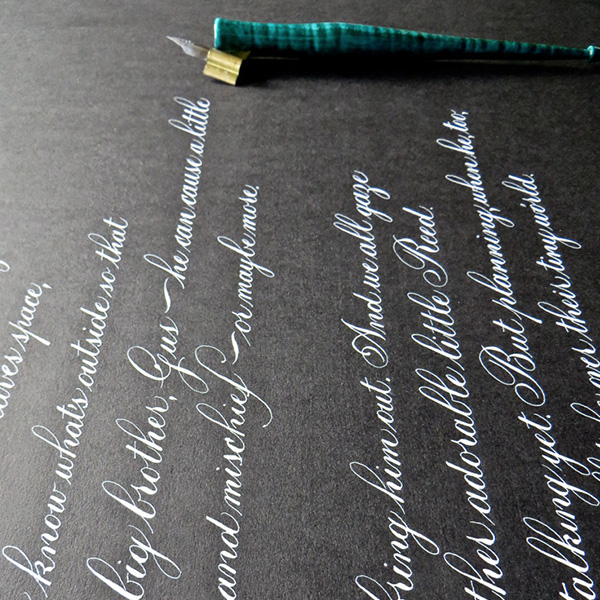 aves space,
know what's outside so that
big brother, Gus – he can cause a little
and mischief – or maybe more.
bring him out. And we all gaze
ther adorable little Reed.
talking yet. But planning, when he, too,
over their tiny world.